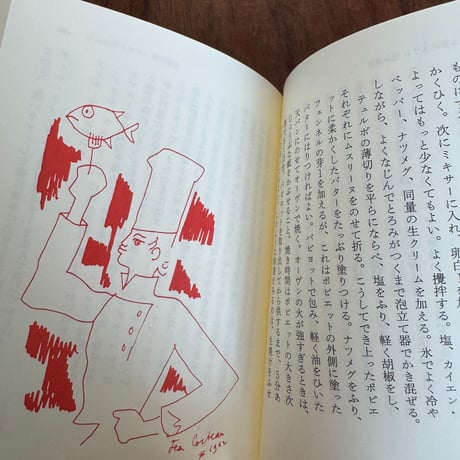 ものに
かくひく。次にミキサーに入れ、卵白
よってはもっと少なくてもよい。よく攪拌する。塩、カイエン・
ペッパー、ナツメグ、同量の生クリームを加える。氷でよく冷や
しながら、よくなじんでとろみがつくまで泡立て器でかき混ぜる。
テュルボの薄切りを平らにならべ、塩をふり、軽く胡椒をし、
それぞれにムスリーヌをのせて折る。こうしてでき上ったポピエ
ットに柔かくしたバターをたっぷり塗りつける。ナツメグをふり、
フェンネルの芽1を加えるが、これはポピエットの外側に塗った
バターにはりつければよい。パピヨットで包み、軽く油をひいた
天パンにのせてオーヴンで焼く。オーヴンの火が強すぎるときは、
じょうぶな紙をかぶせること。焼き時間はポピエットの大きさ次
から供するまで、5分あ
Jean Cocteau
* 1962